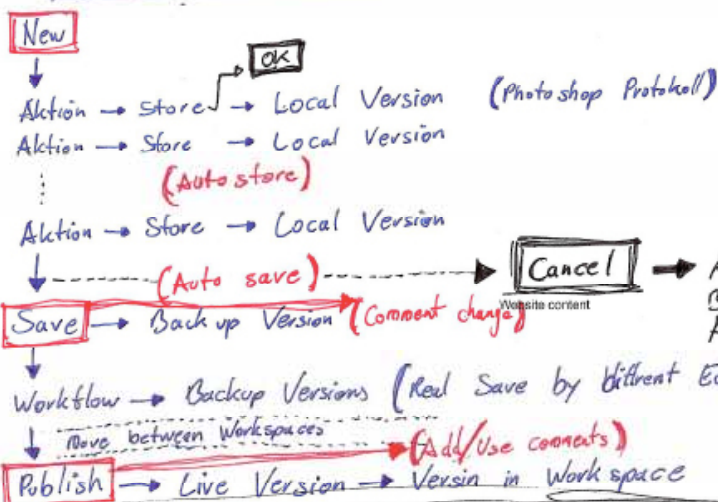 New
OK
Aktion → Store → Local Version (Photoshop Protokoll)
Aktion → Store → Local Version
(Auto store)
Aktion → Store → Local Version
(Auto save)
Cancel
Website content
Save → Backup Version (Comment change)
Workflow → Backup Versions (Real Save by diffrent
Move between Workspaces
(Add/Use comments)
Publish → Live Version → Versin in Workspace